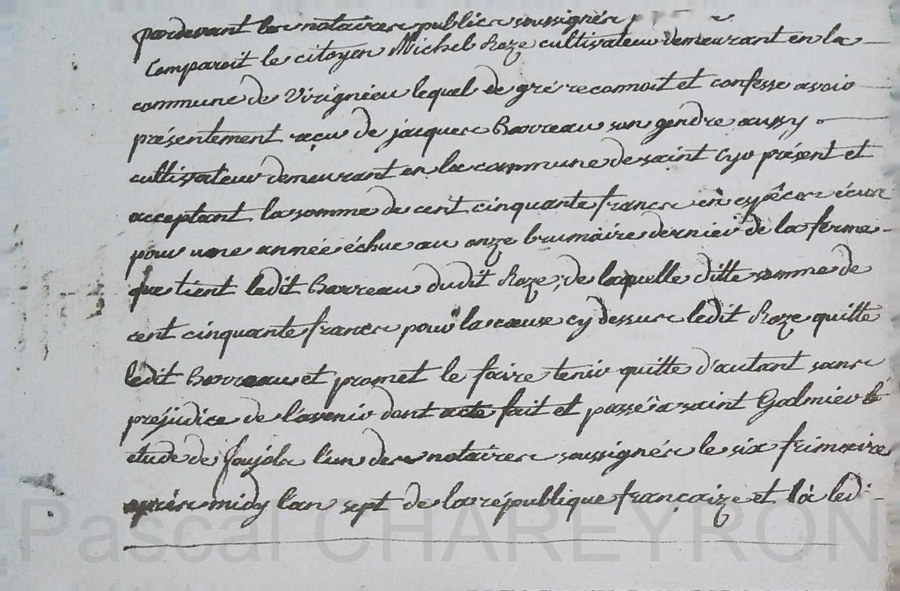 pardevant les notaires publics soussignés,
Comparoit le citoyen Michel Roze cultivateur demeurant en la
commune de Virignieu lequel de gré reconnoit et confesse avoir
présentement reçu de jacques Barreau son gendre aussy
cultivateur demeurant en la commune de saint Cyr présent et
acceptant, la somme de cent cinquante francs en espêces écus
pour une année échue au onze brumaire dernier de la ferme
que tient ledit Barreau dudit Roze, de laquelle ditte somme de
cent cinquante francs pour la cause cy dessus ledit Roze quitte
ledit Barreau et promet le faire tenir quitte d'autant sans
préjudice de l'avenir dont acte fait et passé à saint Galmier
étude de l'un des notaires soussignés le six frimaire
après midy l'an sept de la république françaize et là ledi
Pascal CHAREYRON